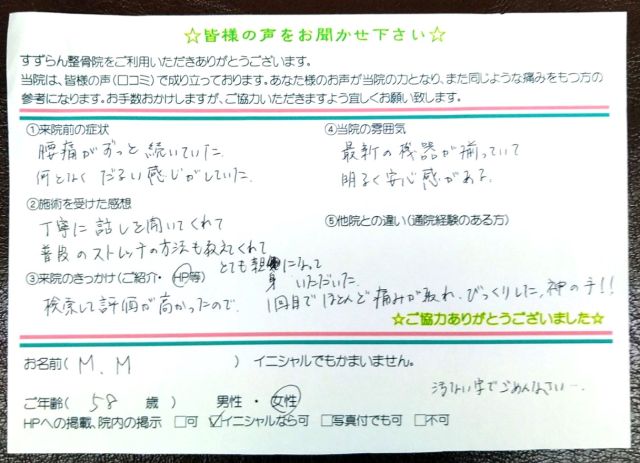 ☆皆様の声をお聞かせ下さい☆
すずらん整骨院をご利用いただきありがとうございます。
当院は、皆様の声(口コミ)で成り立っております。あなた様のお声が当院の力となり、また同じような痛みをもつ方の
参考になります。お手数おかけしますが、ご協力いただきますよう宜しくお願い致します。
①来院前の症状
腰痛がずっと続いていた。
何となくだるい感じがしていた。
②施術を受けた感想
丁寧に話しを聞いてくれて
普段のストレッチの方法も教えてくれて
とても親身になって
いただいた。
1回目でほとんど痛みが取れ、びっくりした。神の手!!
③来院のきっかけ(ご紹介・HP等)
検索して評価が高かったので。
④当院の雰囲気
最新の機器が揃っていて
明るく安心感がある。
⑤他院との違い(通院経験のある方)
☆ご協力ありがとうございました☆
お名前( M.M ) イニシャルでもかまいません。
ご年齢( 58 歳 ) 男性 ・ 女性
汚ない字でごめんなさい…。
HPへの掲載、院内の掲示 □可 ☑イニシャルなら可 □写真付でも可 □不可